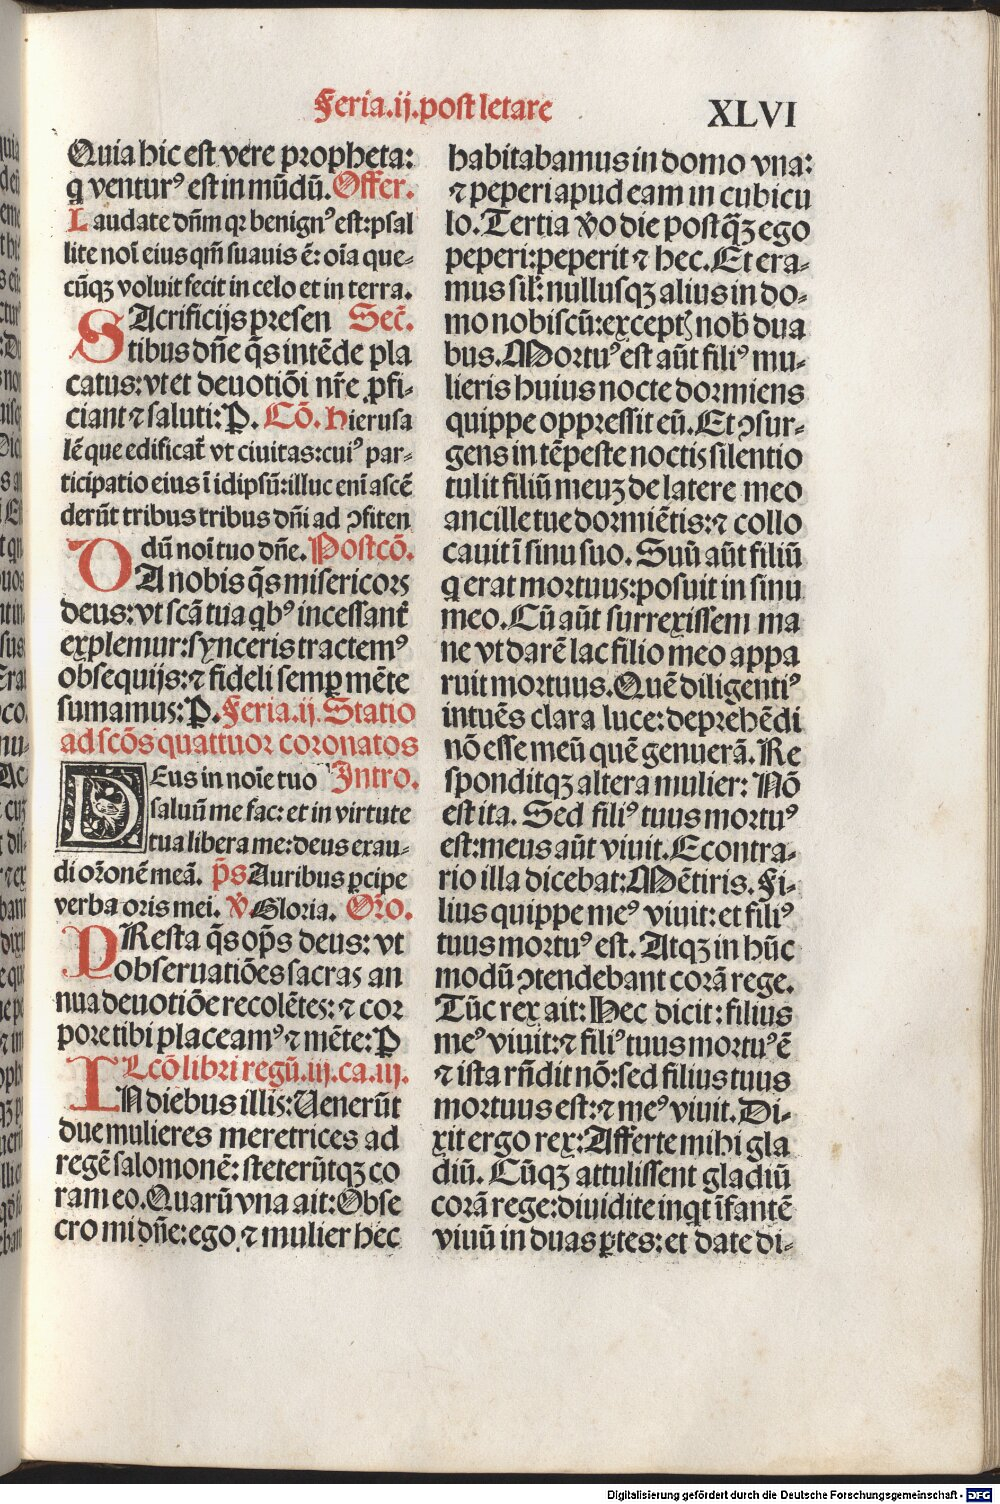 Feria.ij.post letare
XLVI
Quia hic est vere propheta:
q̄ venturꝰ est in mūdū. Offer.
Laudate dñm qꝛ benignꝰ est: psal
lite noī eius qm̄ suauis ē: oīa que-
cūqꝫ voluit fecit in celo et in terra.
SAcrificijs presen Sec̄.
tibus dñe q̄s intēde pla
catus: vt et deuotiōi nr̄e ꝓfi-
ciant ⁊ saluti: P. Cō. Hierusa
lē que edificat̄ vt ciuitas: cuiꝰ par-
ticipatio eius ī idipsū: illuc enī ascē
derūt tribus tribus dñi ad ꝯfiten
dū noī tuo dñe. Postcō.
DA nobis q̄s misericors
deus: vt scā tua qbꝰ incessant̄
explemur: synceris tractemꝰ
obsequijs: ⁊ fideli semꝑ mēte
sumamus: P. Feria.ij. Statio
ad scōs quattuor coronatos
DEus in noīe tuo Intro.
saluū me fac: et in virtute
tua libera me: deus exau-
di or̄onē meā. p̄s Auribus ꝑcipe
verba oris mei. v̄ Gloria. Or̄o.
PResta q̄s op̄s deus: vt
obseruatiōes sacras an
nua deuotiōe recolētes: ⁊ cor
pore tibi placeamꝰ ⁊ mēte: P
Lcō libri regū.iij.ca.iij.
IN diebus illis: Venerūt
due mulieres meretrices ad
regē salomonē: steterūtqꝫ co
ram eo. Quarū vna ait: Obse
cro mi dñe: ego ⁊ mulier hec
habitabamus in domo vna:
⁊ peperi apud eam in cubicu
lo. Tertia v̄o die postq̄ꝫ ego
peperi: peperit ⁊ hec. Et era-
mus sil̄: nullusqꝫ alius in do-
mo nobiscū: except̄ nob̄ dua
bus. Mortuꝰ est aūt filiꝰ mu-
lieris huius nocte dormiens
quippe oppressit eū. Et ꝯsur-
gens in tēpeste noctis silentio
tulit filiū meuꝫ de latere meo
ancille tue dormiētis: ⁊ collo
cauit ī sinu suo. Suū aūt filiū
q̄ erat mortuus: posuit in sinu
meo. Cū aūt surrexissem ma
ne vt darē lac filio meo appa
ruit mortuus. Quē diligentiꝰ
intuēs clara luce: deprehēdi
nō esse meū quē genuerā. Re
sponditqꝫ altera mulier: Nō
est ita. Sed filiꝰ tuus mortuꝰ
est: meus aūt viuit. Econtra-
rio illa dicebat: Mētiris. Fi-
lius quippe meꝰ viuit: et filiꝰ
tuus mortuꝰ est. Atqꝫ in hūc
modū ꝯtendebant corā rege.
Tūc rex ait: Hec dicit: filius
meꝰ viuit: ⁊ filiꝰ tuus mortuꝰ ē
⁊ ista rñdit nō: sed filius tuus
mortuus est: ⁊ meꝰ viuit. Di-
xit ergo rex: Afferte mihi gla
diū. Cūqꝫ attulissent gladiū
corā rege: diuidite inqt īfantē
viuū in duas ꝑtes: et date di-
Digitalisierung gefördert durch die Deutsche Forschungsgemeinschaft - DFG